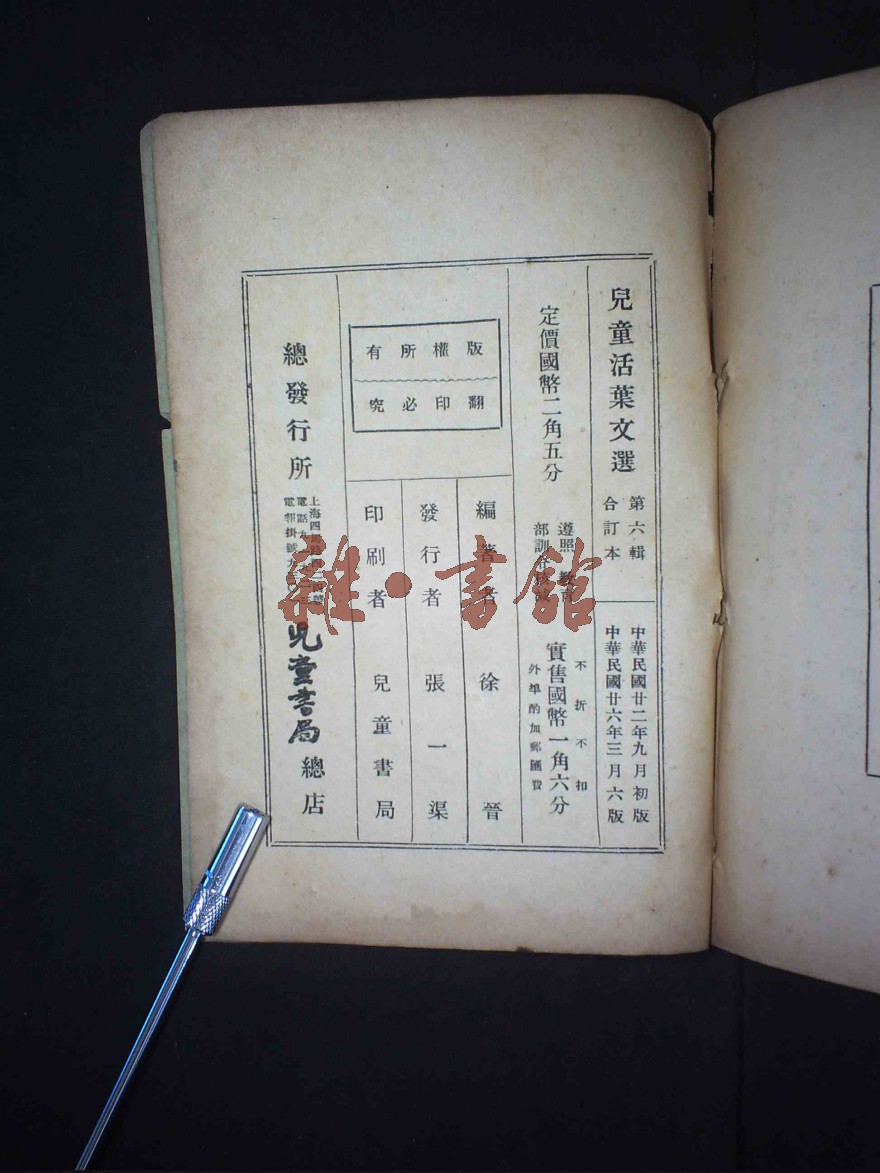 兒童活葉文選
第六輯
合訂本
中華民國廿二年九月初版
中華民國廿六年三月六版
定價國幣二角五分
遵照 教育
部訓令
不折不扣
實售國幣一角六分
外埠酌加郵匯費
版權所有
翻印必究
編著者 徐晉
發行者 張一渠
印刷者 兒童書局
總發行所
上海四
電話九一
電報掛號九
兒童書局
總店
雜·書館